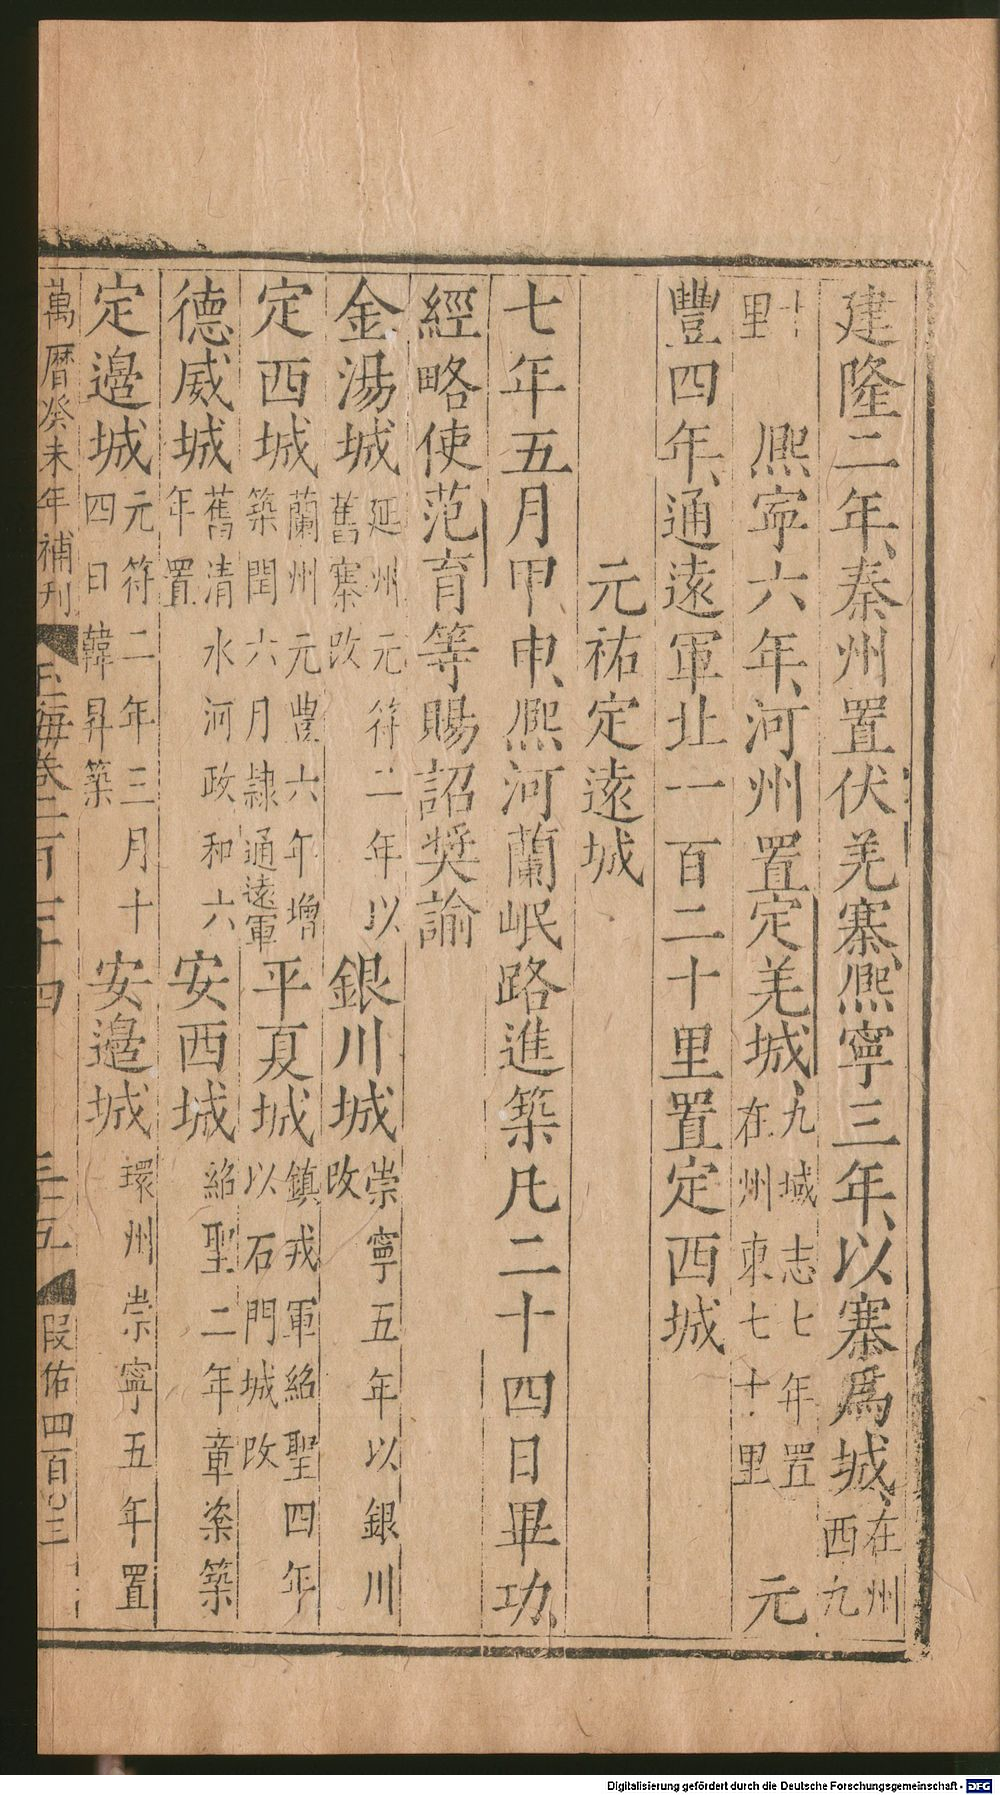 建隆二年、秦州置伏羌寨、熙寧三年、以寨爲城、在州西九
十里　熙寧六年、河州置定羌城、九域志七年置在州東七十里　元
豐四年、通遠軍北一百二十里置定西城
元祐定遠城
七年五月甲申、熙河蘭岷路進築凡二十四日畢功
經略使范育等賜詔奨諭
金湯城延州元符二年以舊寨改　銀川城崇寧五年以銀川改
定西城蘭州元豐六年增築閏六月隷通遠軍　平夏城鎮戎軍紹聖四年以石門城改
德威城舊清水河政和六年置　安西城紹聖二年章楶築
定邉城元符二年三月十四日韓昇築　安邉城環州崇寧五年置
萬曆癸未年補刋　玉海卷二百七十四　三十五　叚佑四百〇三
Digitalisierung gefördert durch die Deutsche Forschungsgemeinschaft - DFG